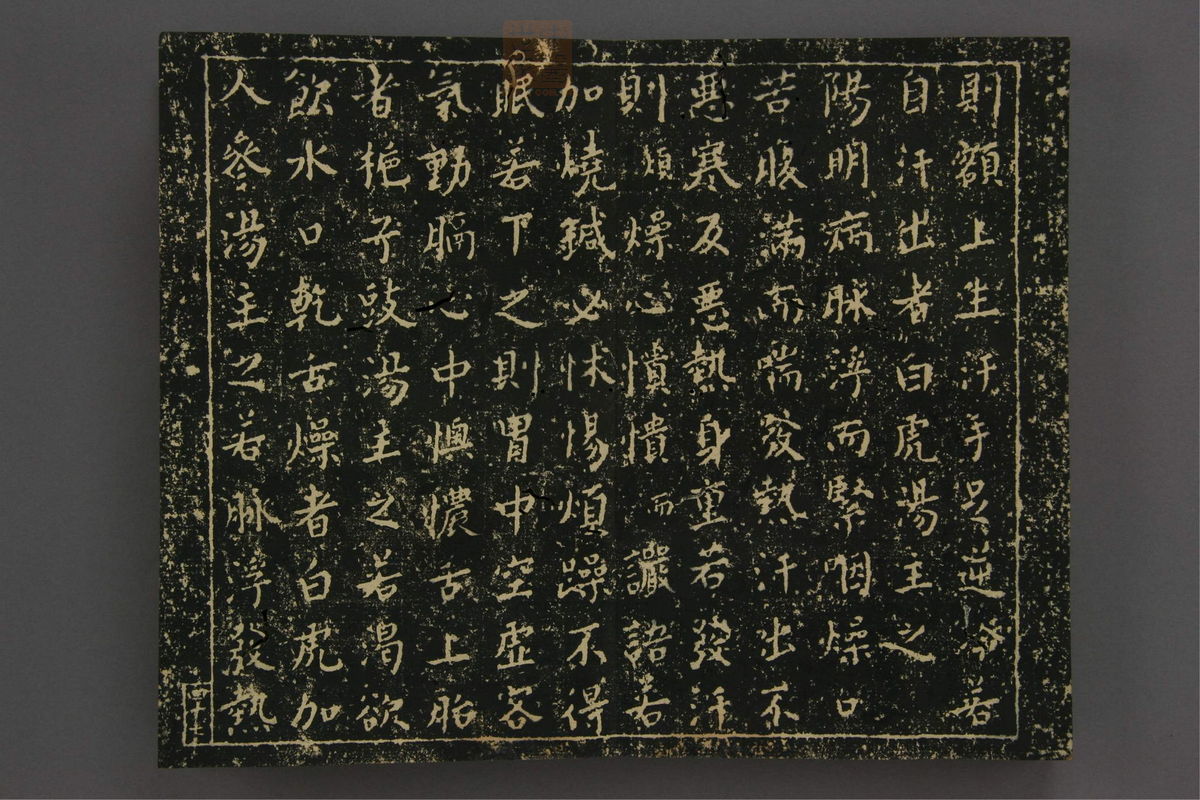 則額上生汗手足逆冷若
自汗出者白虎湯主之
陽明病脉浮而緊咽燥口
苦腹滿而喘發熱汗出不
惡寒反惡熱身重若發汗
則煩燥心憒憒而讝語若
加燒鍼必怵惕煩躁不得
眠若下之則胃中空虛客
氣動膈心中懊憹舌上胎
者梔子豉湯主之若渴欲
飲水口乾舌燥者白虎加
人參湯主之若脉浮發熱